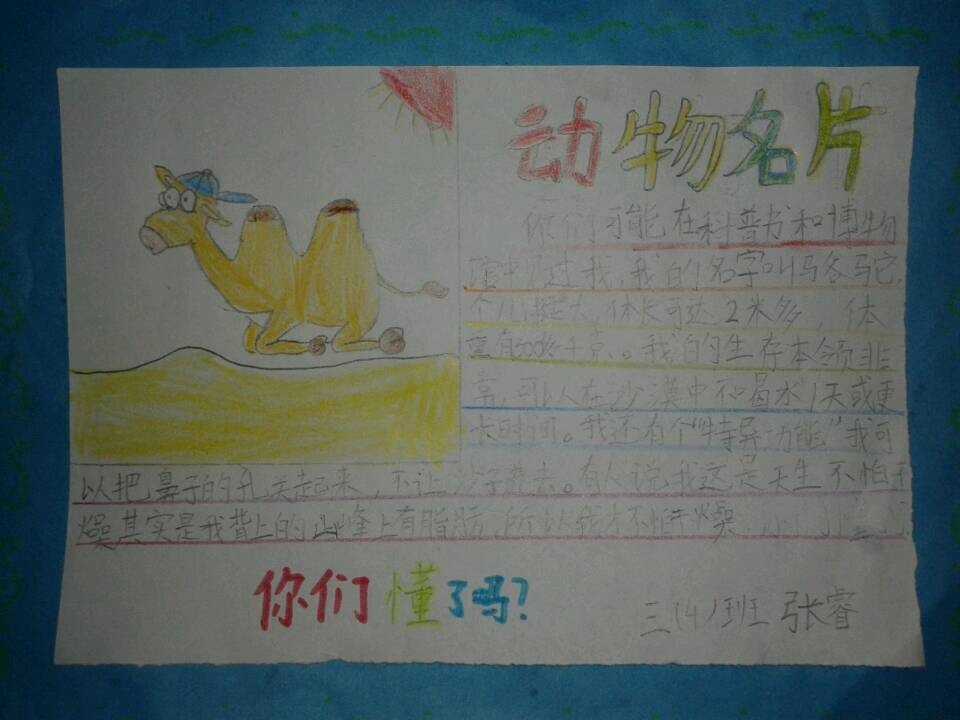 动物名片
你们可能在科普书和博物
馆中见过我,我的名字叫骆驼,
个儿挺大,体长可达2米多,体
重有500多千克。我的生存本领非
常,可以在沙漠中不喝水1天或更
长时间。我还有个“特异功能”我可
以把鼻子的孔关起来,不让沙子进去。有人说我这是天生不怕干
燥其实是我背上的山峰上有脂肪,所以我才不怕干燥
你们懂了吗?
三(4)班 张睿